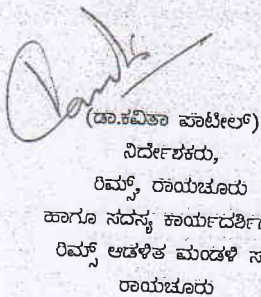 (ಡಾ.ಕವಿತಾ ಪಾಟೀಲ್)
ನಿರ್ದೇಶಕರು,
ರಿಮ್ಸ್, ರಾಯಚೂರು
ಹಾಗೂ ಸದಸ್ಯ ಕಾರ್ಯದರ್ಶಿ
ರಿಮ್ಸ್ ಆಡಳಿತ ಮಂಡಳಿ
ರಾಯಚೂರು